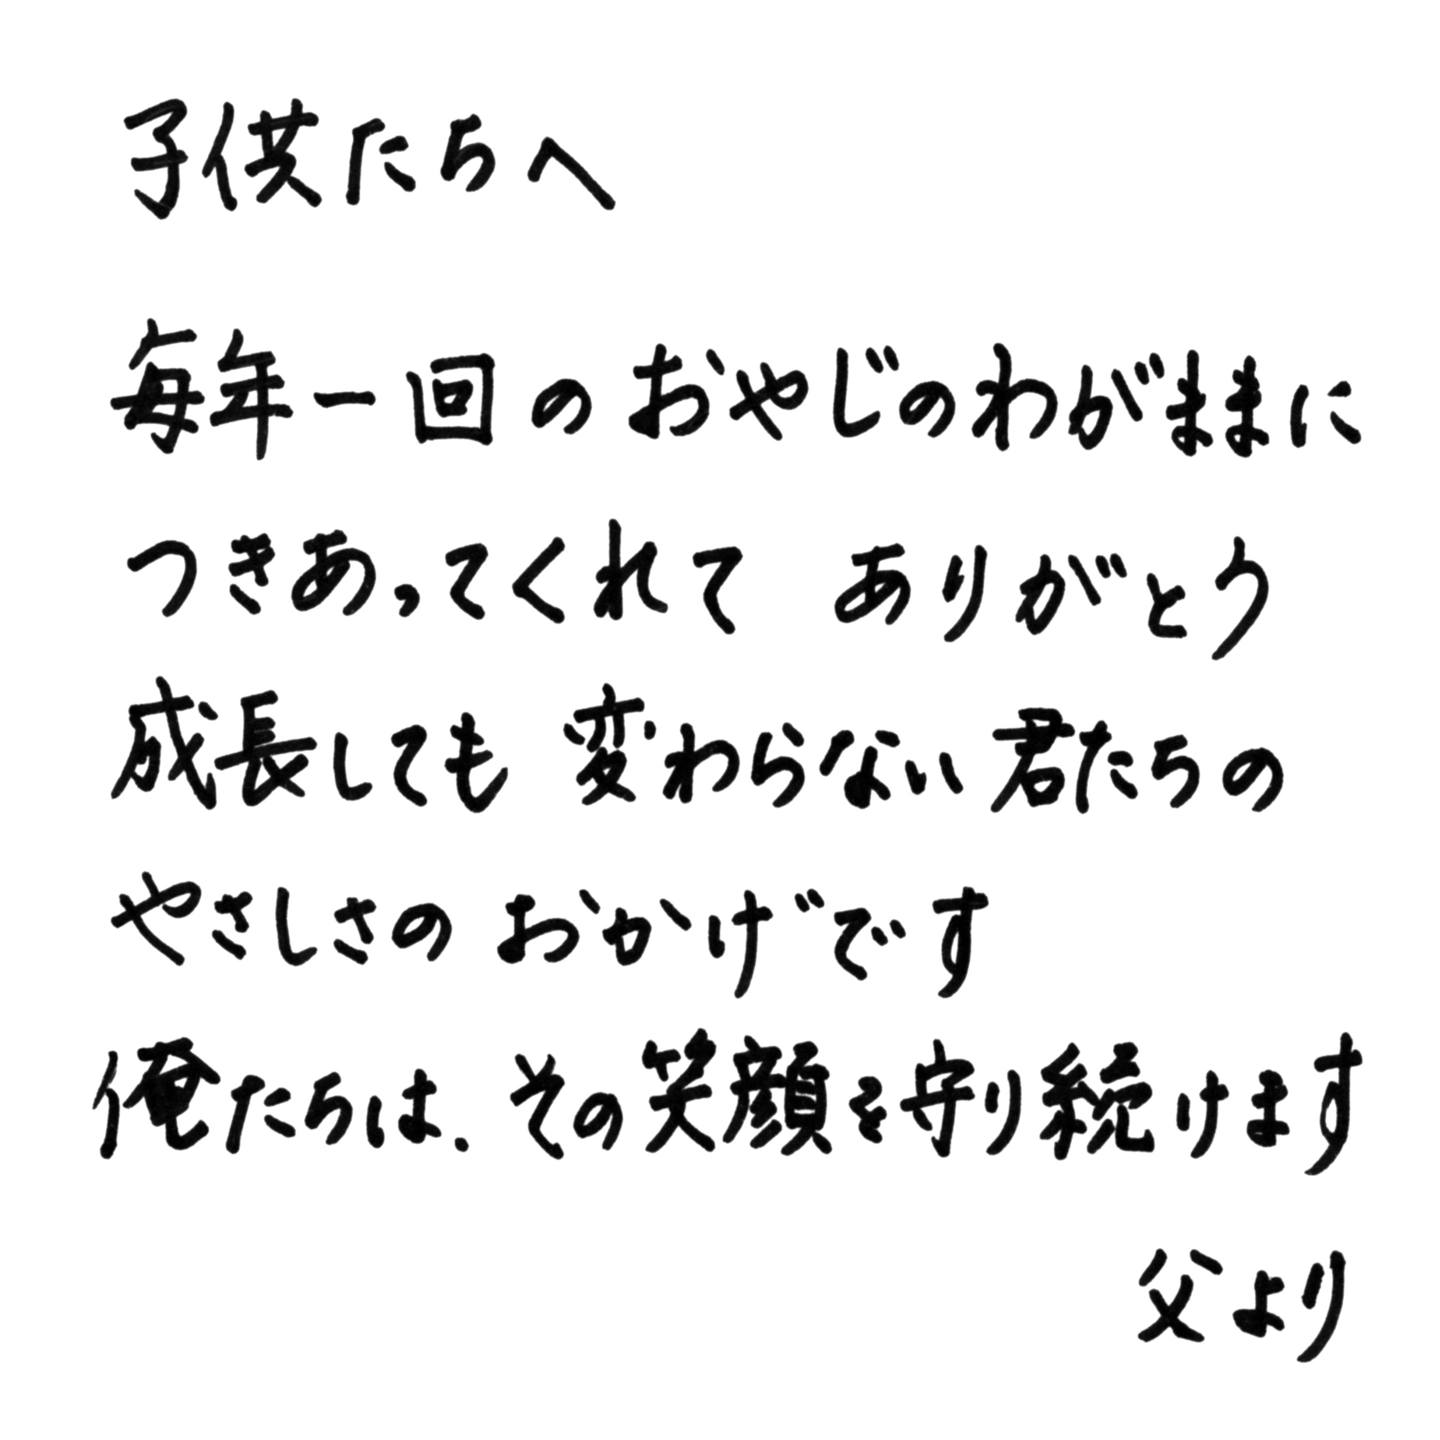 子供たちへ
毎年一回のおやじのわがままに
つきあってくれて ありがとう
成長しても 変わらない君たちの
やさしさの おかげです
俺たちは、その笑顔を守り続けます
父より